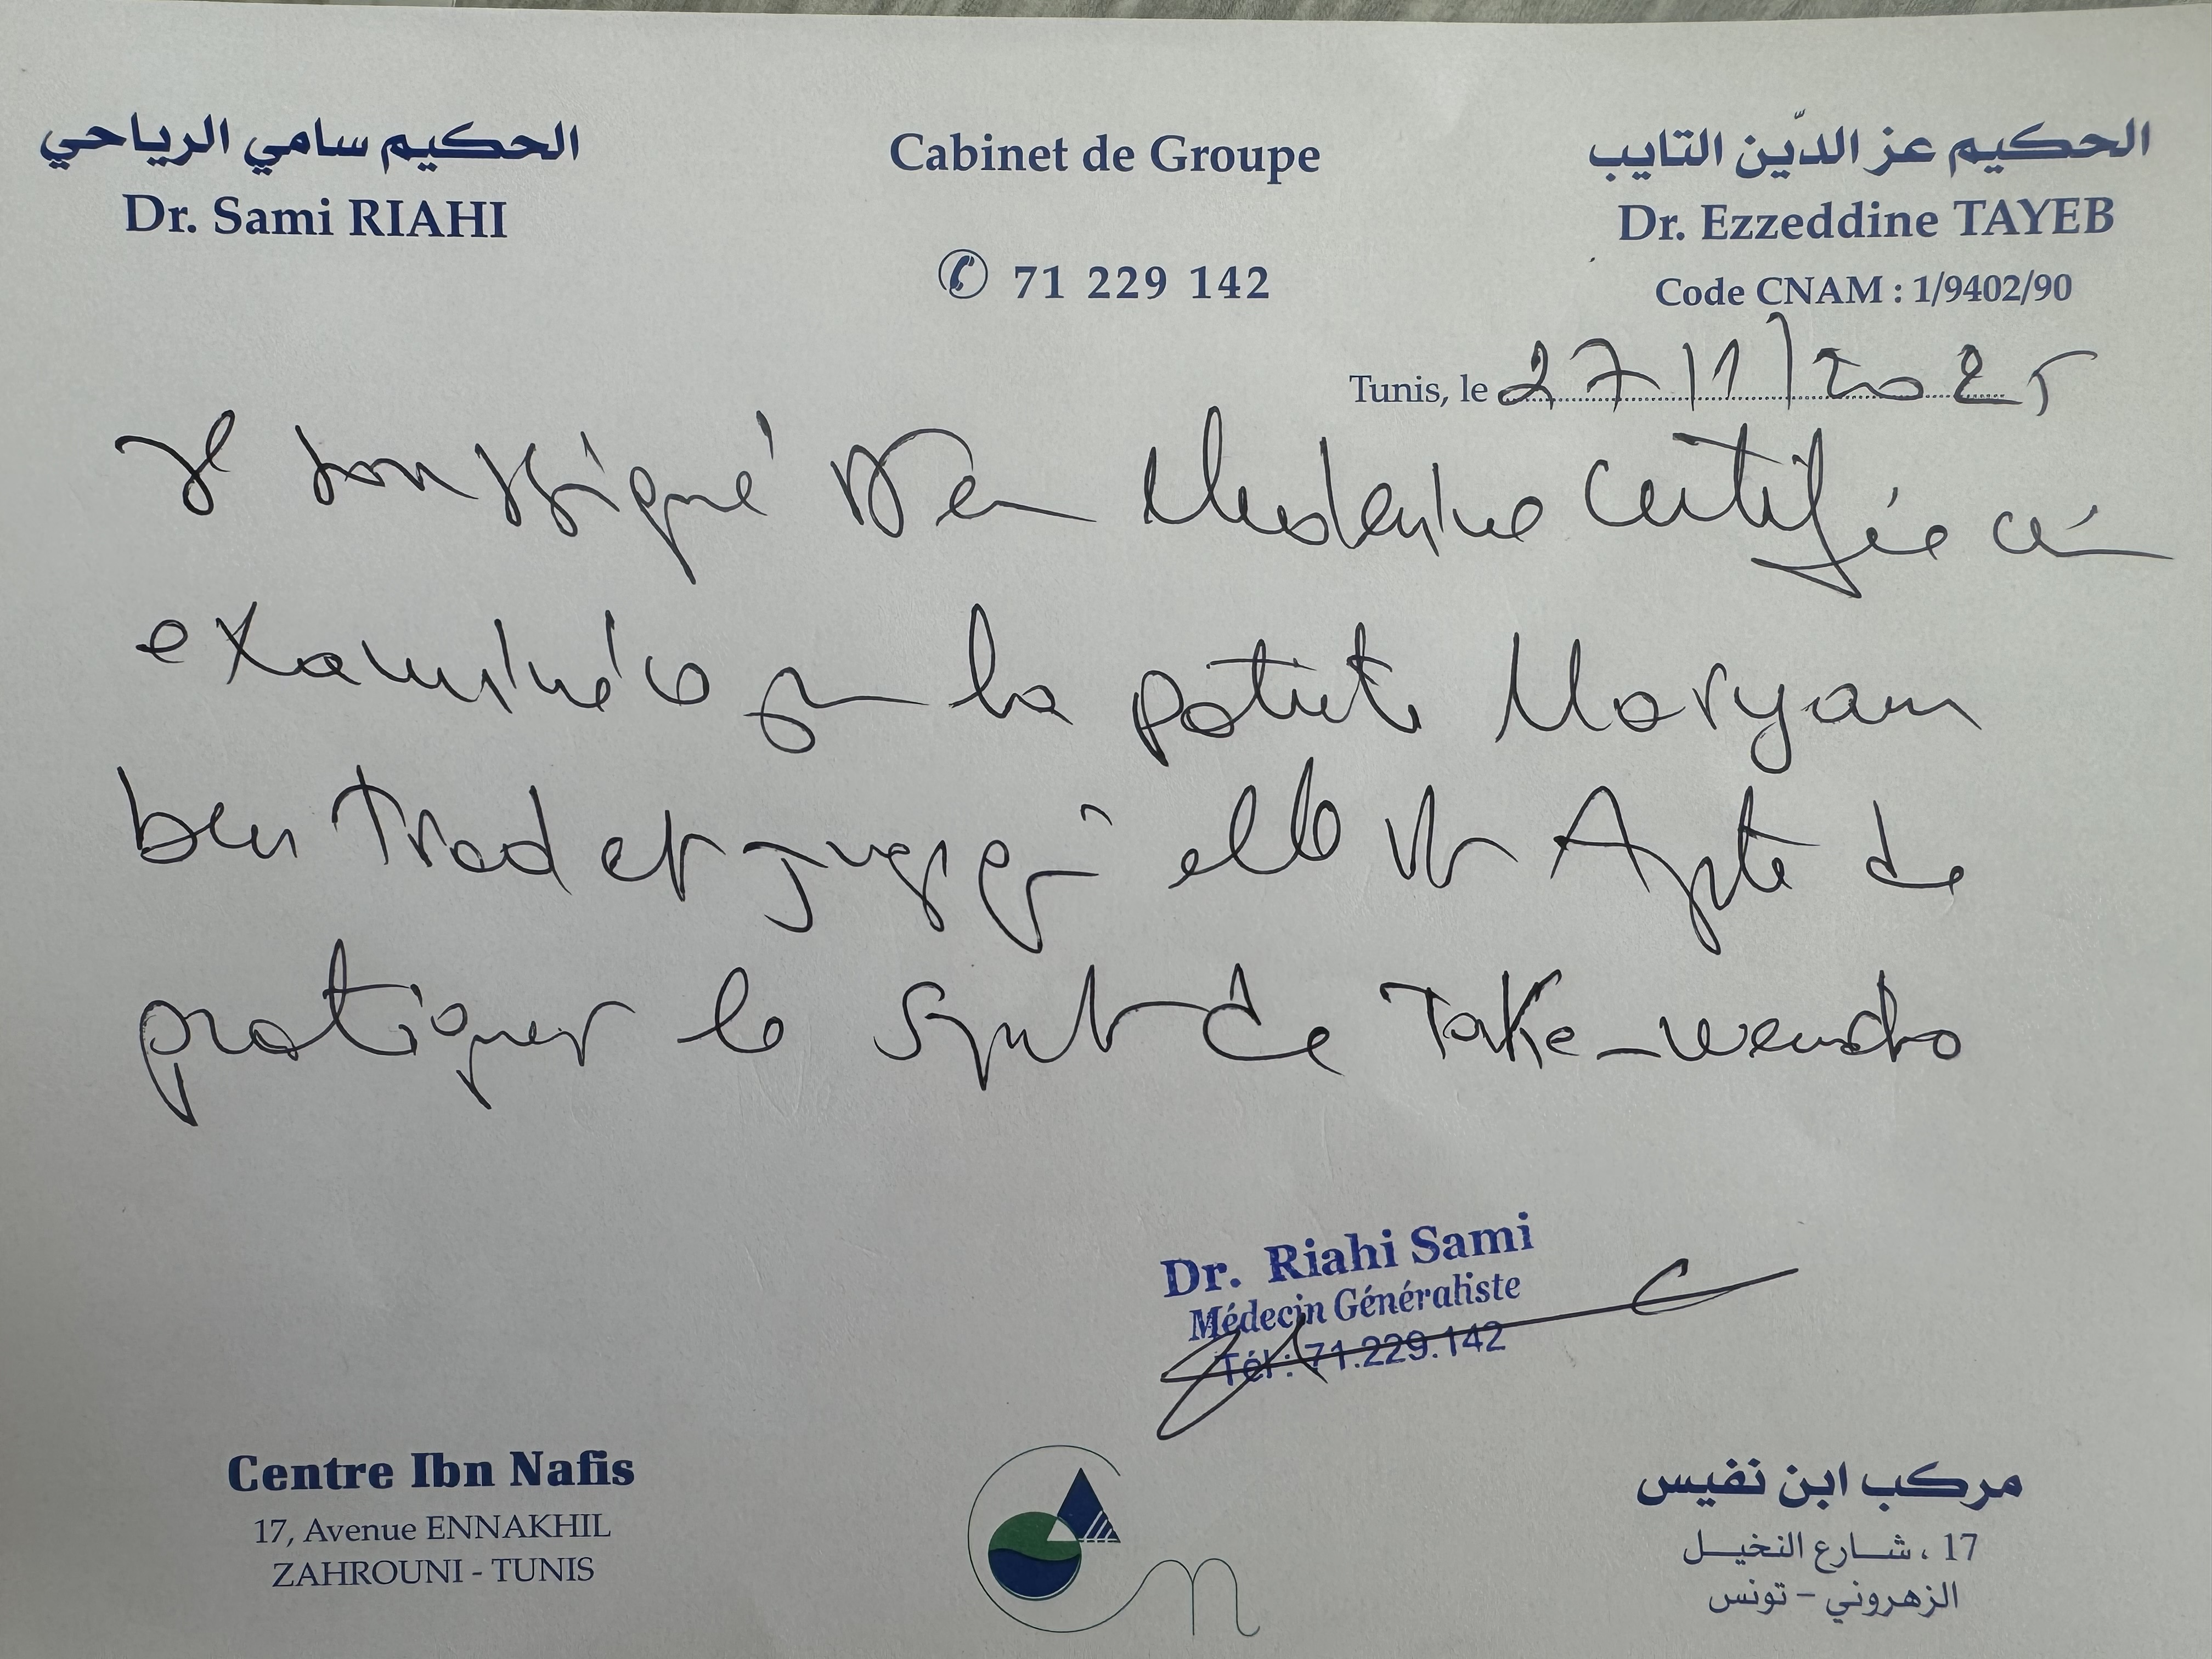 الحكيم سامي الرياحي
Dr. Sami RIAHI
Cabinet de Groupe
71 229 142
الحكيم عز الدّين التايب
Dr. Ezzeddine TAYEB
Code CNAM : 1/9402/90
Tunis, le 27/11/2025
Je soussigné Dr en Medecine certifie
examiné la patiente Maryam
ben Trad et juge qu'elle est Apte de
pratiquer le sport de Take-wendo
Dr. Riahi Sami
Médecin Généraliste
Tél : 71.229.142
Centre Ibn Nafis
17, Avenue ENNAKHIL
ZAHROUNI - TUNIS
مركب ابن نفيس
17 ، شـارع النخيـل
الزهروني - تونس